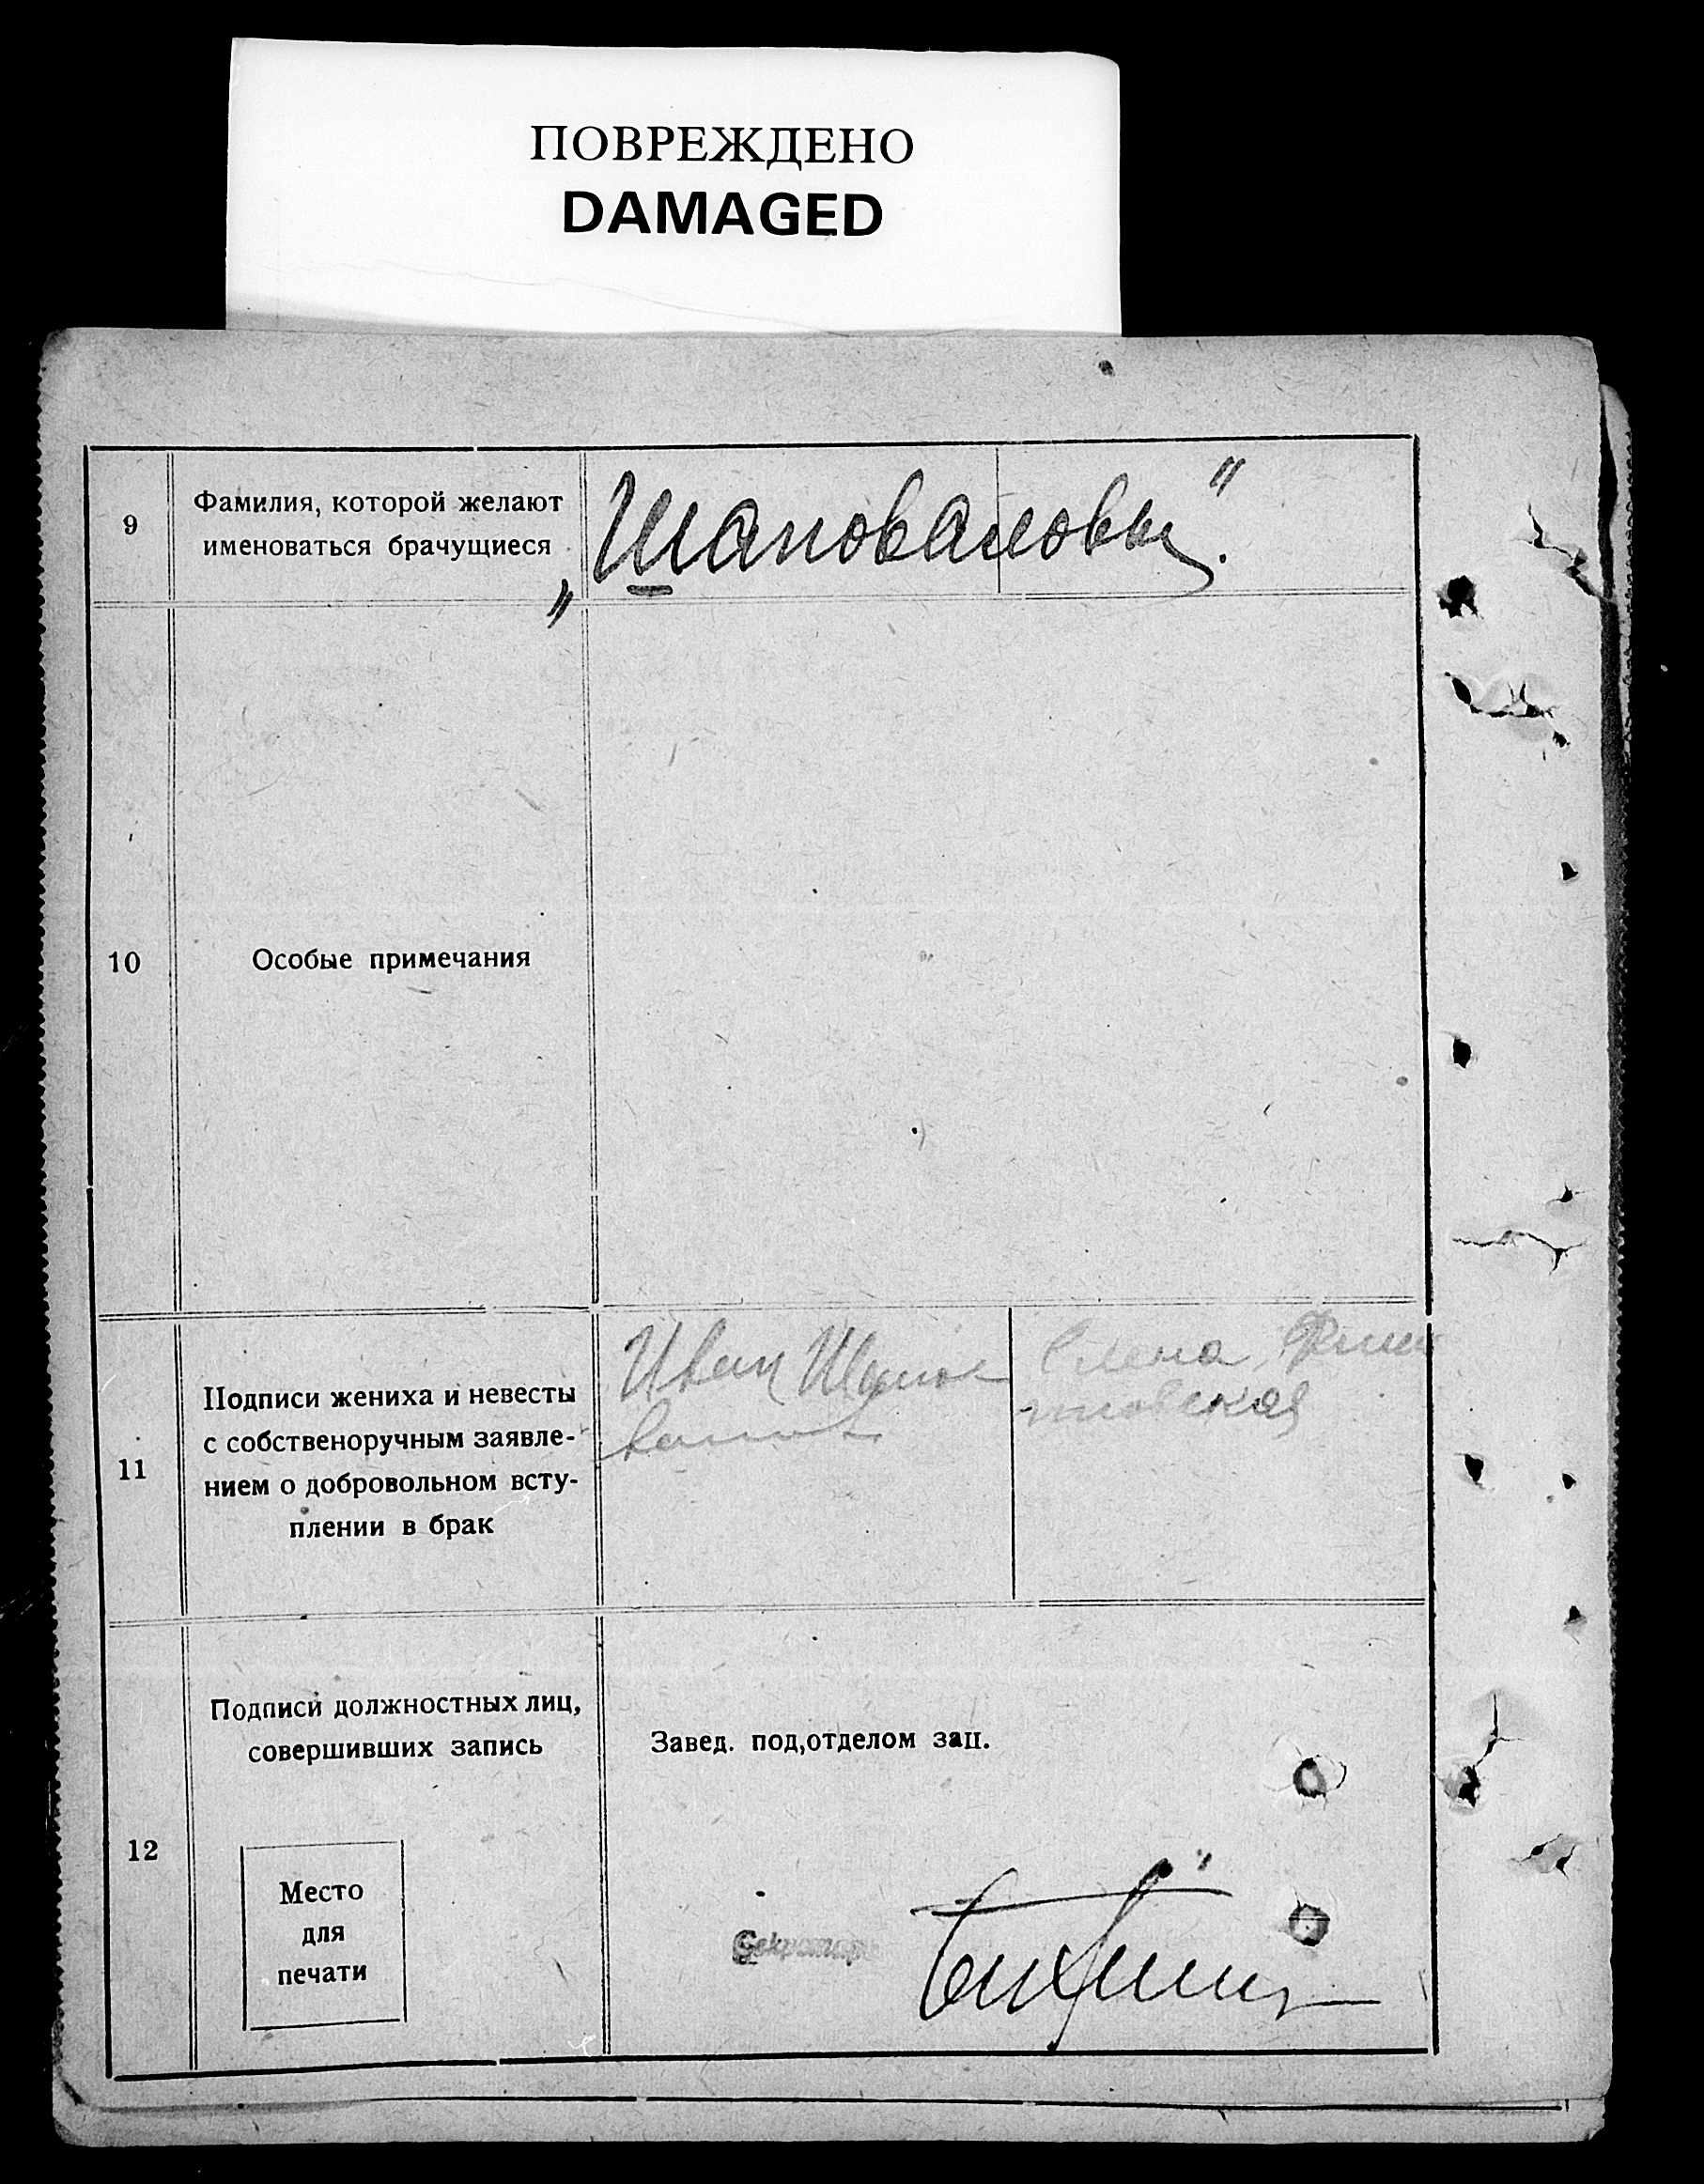 ПОВРЕЖДЕНО
DAMAGED
9
Фамилия, которой желают
именоваться брачущиеся
„Шаповаловы".
10
Особые примечания
11
Подписи жениха и невесты
с собственоручным заявле-
нием о добровольном всту-
плении в брак
Иван Шапо
валов
Елена
12
Подписи должностных лиц,
совершивших запись
Завед. под,отделом зап.
Место
для
печати
Секретарь